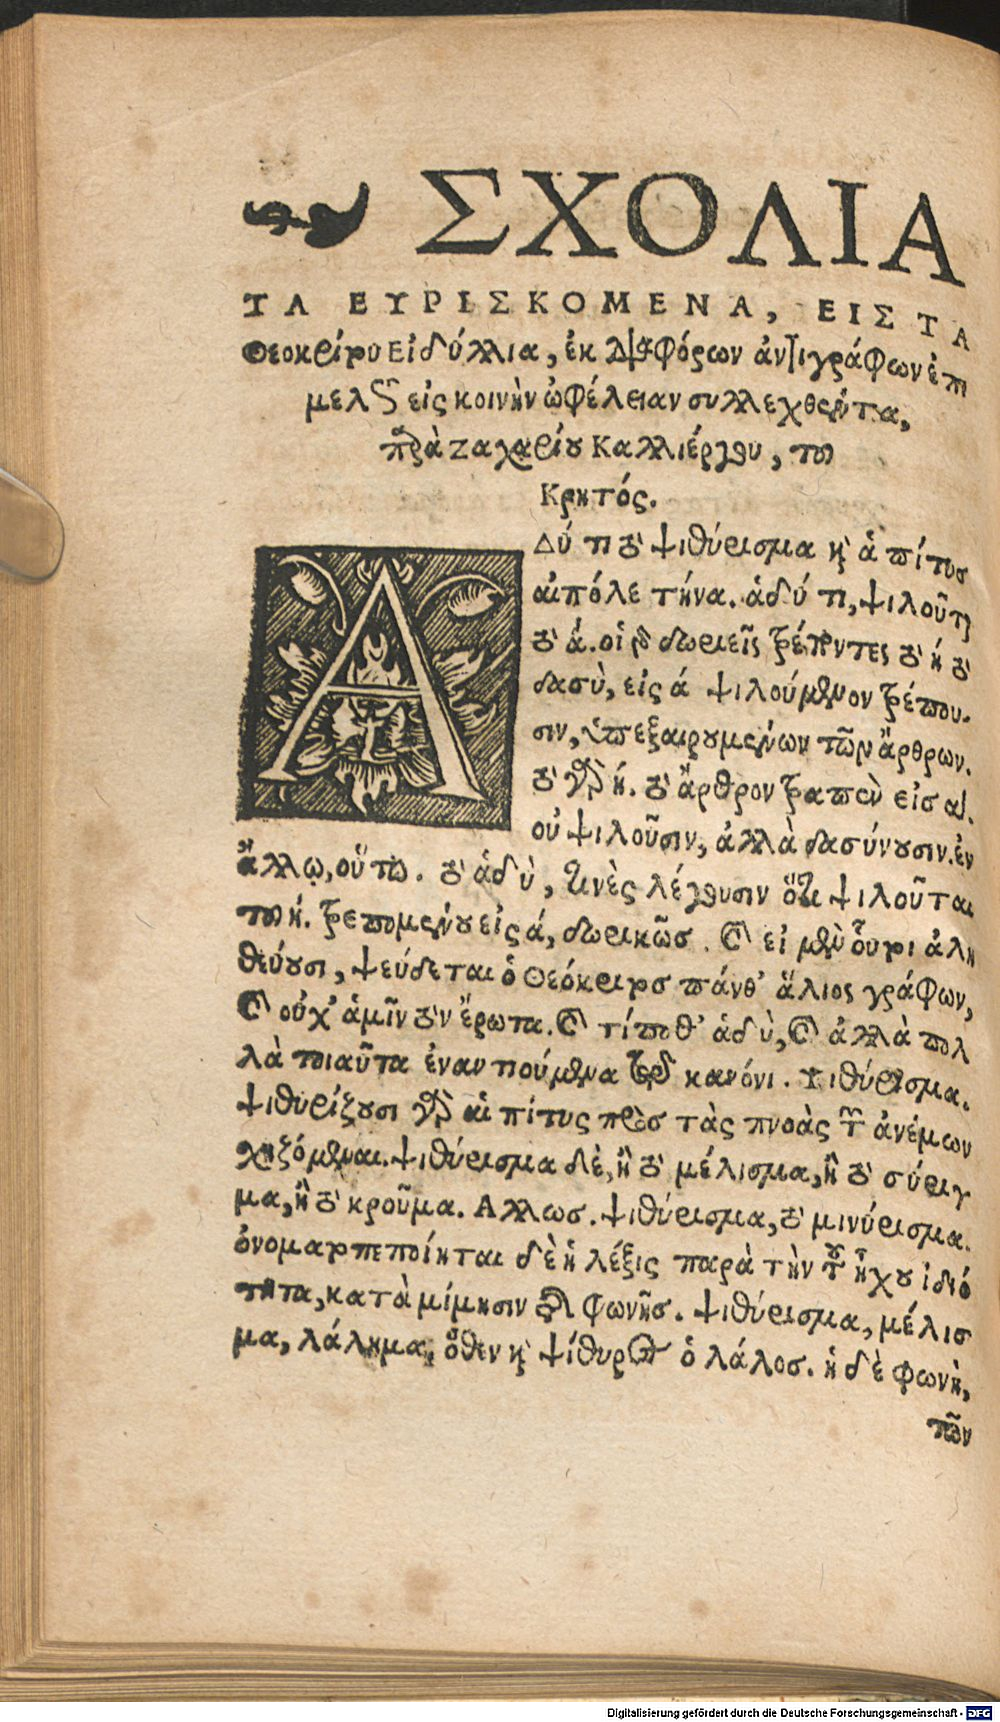 ΣΧΟΛΙΑ
ΤΑ ΕΥΡΙΣΚΟΜΕΝΑ, ΕΙΣ ΤΑ
Θεοκρίτου Εἰδύλλια, ἐκ διαφόρων ἀντιγράφων ἐπι
μελῶς εἰς κοινὴν ὠφέλειαν συλλεχθέντα,
παρὰ Ζαχαρίου Καλλιέργου, τοῦ
Κρητός.
ΑΔύ τι τὸ ψιθύρισμα καὶ ἁ πίτυς
αἰπόλε τήνα. ἁδύ τι, ψιλοῦται
τὸ ά. οἱ γὰρ δωριεῖς τρέποντες τὸ ή τὸ
δασὺ, εἰς ά ψιλούμενον τρέπου-
σιν, ὑπεξαιρουμένων τῶν ἄρθρων.
τὸ γὰρ ή. τὸ ἄρθρον τραπὲν εἰς αἱ.
οὐ ψιλοῦσιν, ἀλλὰ δασύνουσιν. ἐν
ἄλλῳ, οὕτω. τὸ ἁδὺ, τινὲς λέγουσιν ὅτι ψιλοῦται
τοῦ ή. τρεπομένου εἰς ά, δωρικῶς. καὶ εἰ μὲν οὗτοι ἀλη
θεύουσι, ψεύδεται ὁ Θεόκριτος πάνθ' ἅλιος γράφων,
καὶ οὐχ' ἁμῖν τὸν ἔρωτα. καὶ τίποθ' ἁδὺ, καὶ ἀλλὰ πολ
λὰ τοιαῦτα ἐναντιούμενα τῷδε κανόνι. Ψιθύρισμα.
ψιθυρίζουσι γὰρ αἱ πίτυς πρὸς τὰς πνοὰς τῶν ἀνέμων
χηζόμεναι. ψιθύρισμα δὲ, ἢ τὸ μέλισμα, ἢ τὸ σύριγ
μα, ἢ τὸ κροῦμα. Αλλως. ψιθύρισμα, τὸ μινύρισμα.
ὀνοματοπεποίηται δὲ ἡ λέξις παρὰ τὴν τοῦ ἤχου ἰδιό
τητα, κατὰ μίμησιν τῆς φωνῆς. ψιθύρισμα, μέλισ
μα, λάλημα, ὅθεν καὶ ψίθυρος ὁ λάλος. ἡ δὲ φωνὴ,
τῶν
Digitalisierung gefördert durch die Deutsche Forschungsgemeinschaft - DFG